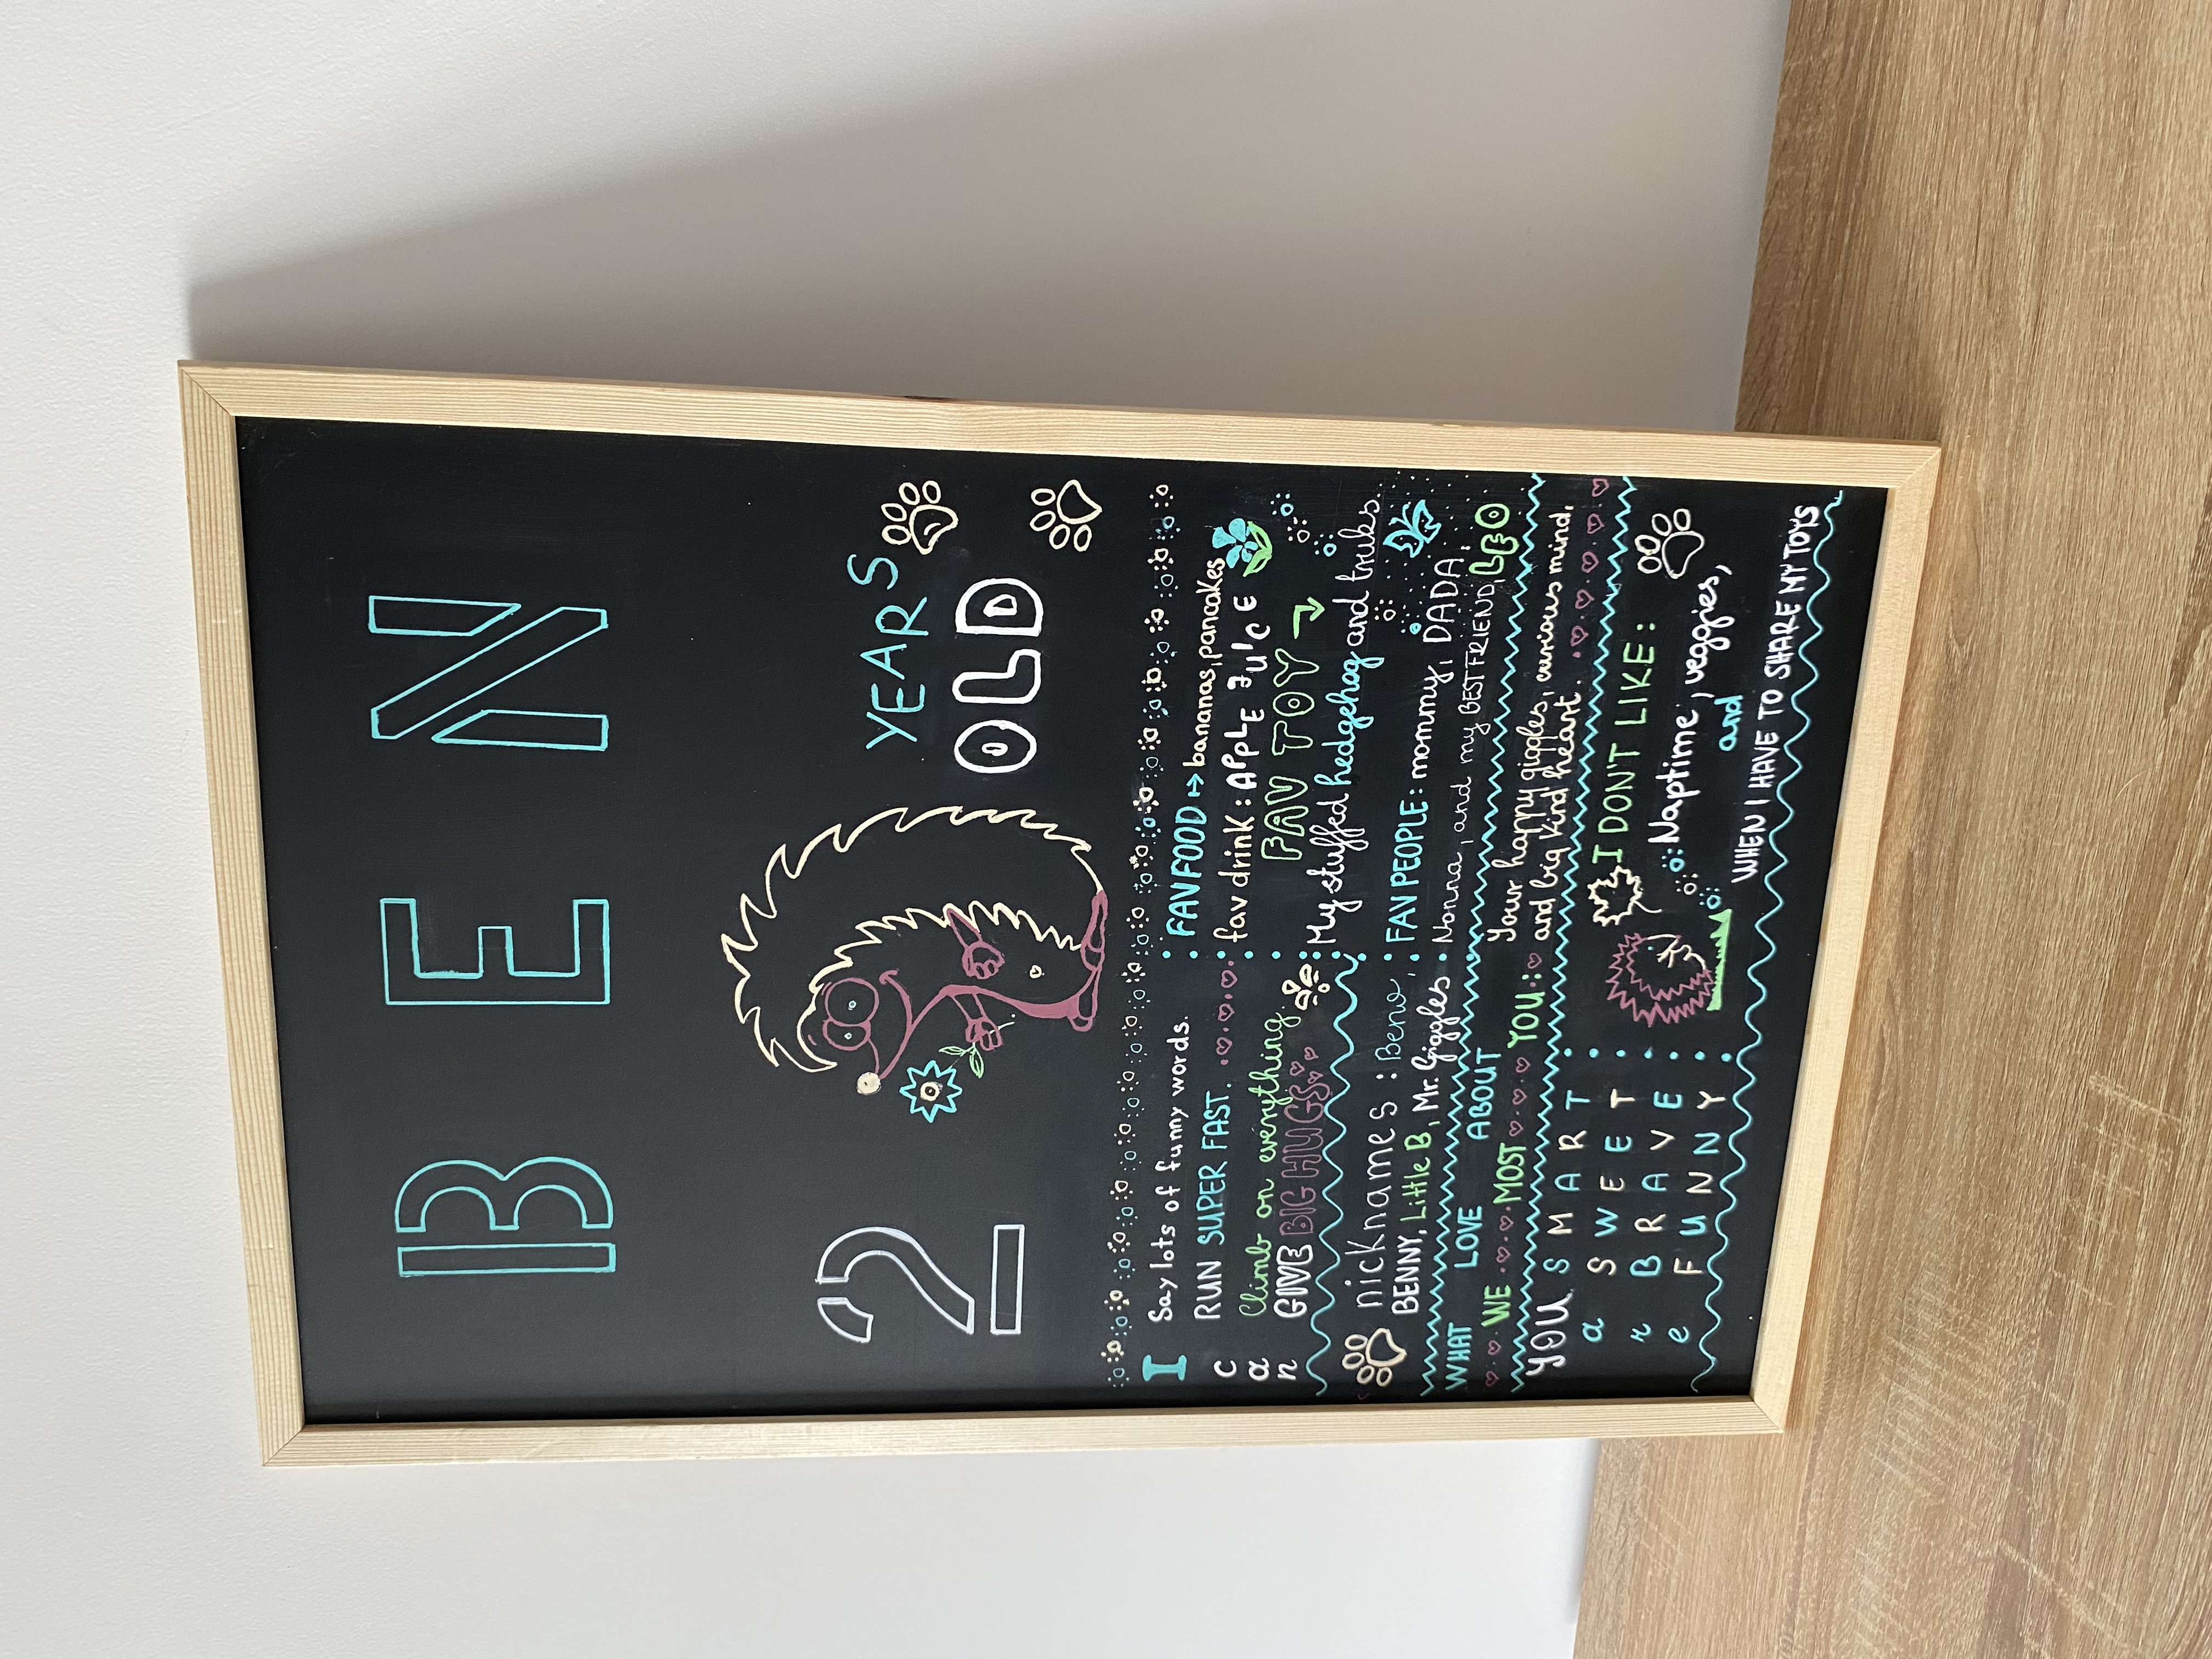 BEN
2 YEARS
OLD
I can
Say lots of funny words.
RUN SUPER FAST.
Climb on everything
GIVE BIG HUGS
FAV FOOD → bananas, pancakes
fav drink: APPLE JUICE
FAV TOY
My stuffed hedgehog and truks
nicknames: Beno,
BENNY, Little B, Mr. Giggles
FAV PEOPLE: mommy, DADA,
Nonna, and my BEST FRIEND, LEO
WHAT LOVE ABOUT
WE MOST YOU:
Your happy giggles, curious mind,
and big kind heart.
YOU are
SMART
SWEET
BRAVE
FUNNY
I DON'T LIKE:
Naptime, veggies,
and
WHEN I HAVE TO SHARE MY TOYS